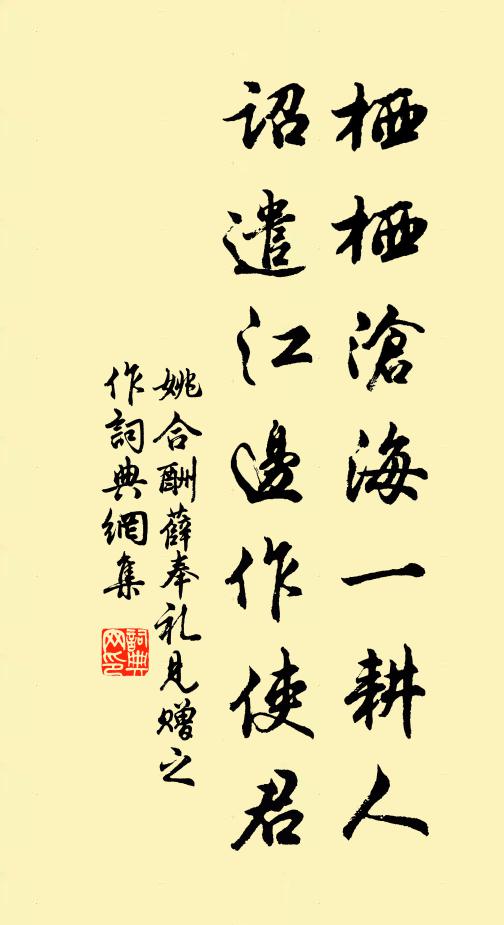 栖栖滄海一耕人
詔遣江邊作使君
姚合酬薛奉礼見贈之
作詞典網集
詞典網印